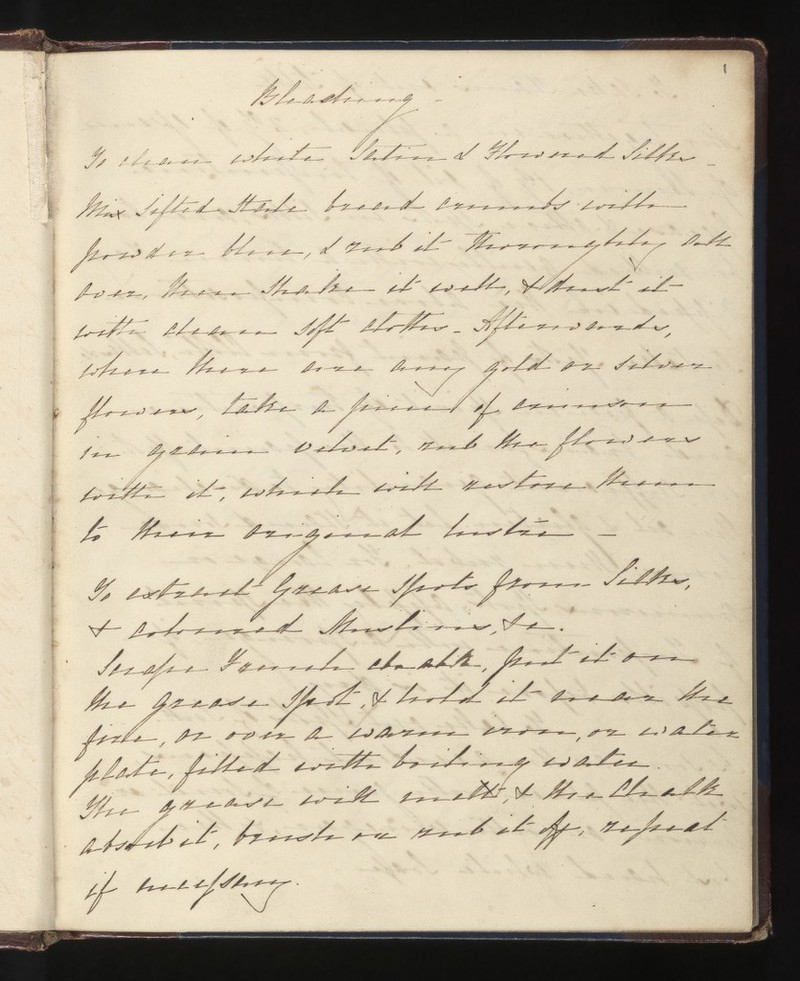 1
Bleaching -
To clean white Satin & Flowered Silks -
Mix Sifted Stale bread crumbs with
powder blue, & rub it thoroughly all
over, then Shake it well, & dust it
with clean soft cloths - Afterwards,
when there are any gold or silver
flowers, take a piece of crimson
in grain velvet, rub the flowers
with it, which will restore them
to their original lustre -
To extract Grease Spots from Silks,
& coloured Muslins, &c.
Scrape French chalk, put it on
the grease Spot, & hold it near the
fire, or over a warm iron, or water
plate, filled with boiling water.
The grease will melt, & the Chalk
absorb it, brush or rub it off, repeat
if necessary.